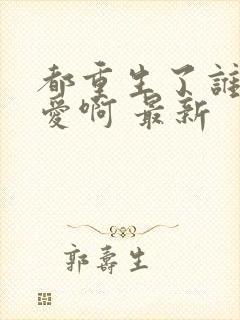 都重生了誰
愛啊 最新
郭壽生